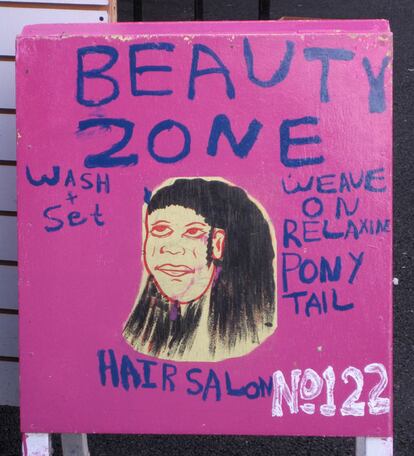 BEAUTY
ZONE
WASH
+
Set
WEAVE
ON
RELAXINE
PONY
TAIL
HAIR SALON
No122